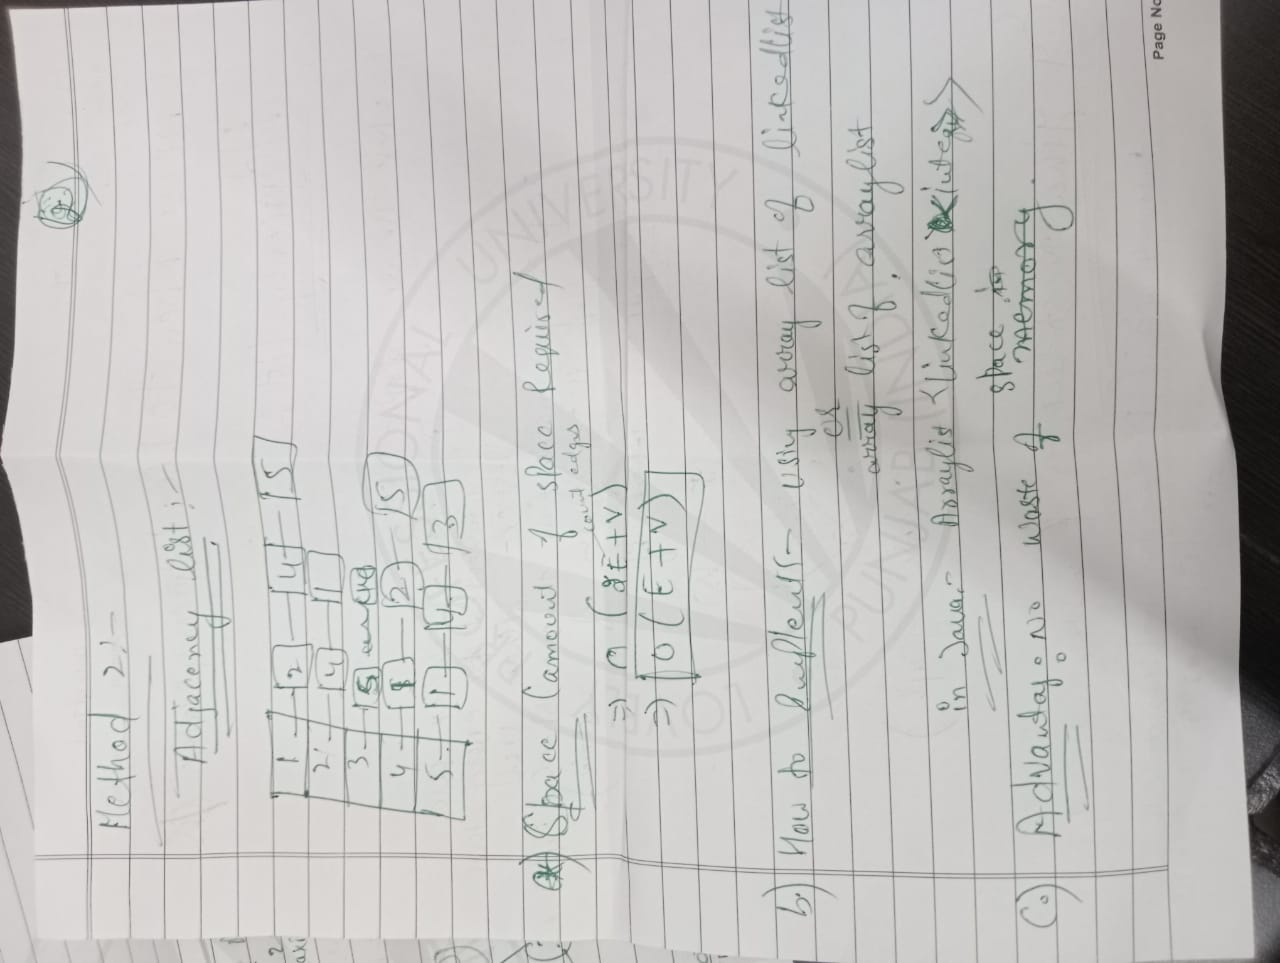 Method 2:-
Adjacency list :-
1 - 2 - 4 - 5
2 - 4 - 1
3 - 5
4 - 1 - 2 - 5
5 - 1 - 4 - 3
a) Space (amount of space required
count edges
=> (2E+V)
=> O(E+V)
b) How to Implement:- using array list of linkedlist
or
array list of arraylist
in Java:- Arraylist <Linkedlist <integer>>
space in
c) Advantage: No waste of memory.
Page No
LOVELY PROFESSIONAL UNIVERSITY
PUNJAB INDIA